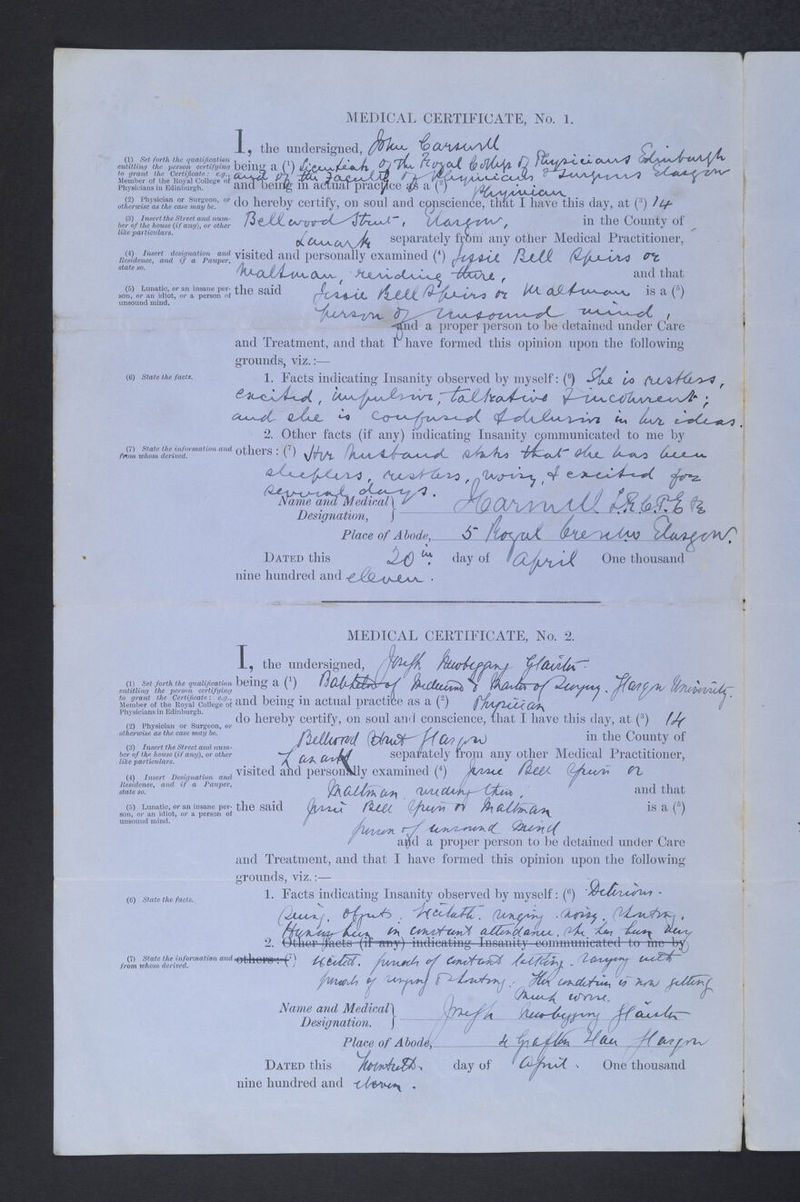 MEDICAL CERTIFICATE, No. 1.
I, the undersigned, John Carswell
(1) Set forth the qualification entitling the person certifying to grant the Certificate: e.g., Member of the Royal College of Physicians in Edinburgh.
being a (1) Licentiate of the Royal College of Physicians Edinburgh
and of the Faculty of Physicians & Surgeons Glasgow
and being in actual practice as a (2) Physician
(2) Physician or Surgeon, or otherwise as the case may be.
do hereby certify, on soul and conscience, that I have this day, at (3) 14
(3) Insert the Street and number of the house (if any), or other like particulars.
Bellwood Street, Glasgow, in the County of
Lanark separately from any other Medical Practitioner,
(4) Insert designation and Residence, and if a Pauper, state so.
visited and personally examined (4) Jessie Bell Speirs or
Maltman, residing there, and that
(5) Lunatic, or an insane person, or an idiot, or a person of unsound mind.
the said Jessie Bell Speirs or Maltman is a (5)
person of unsound mind,
and a proper person to be detained under Care
and Treatment, and that I have formed this opinion upon the following
grounds, viz.:—
(6) State the facts.
1. Facts indicating Insanity observed by myself: (6) She is restless,
excited, impulsive, talkative & incoherent;
and she is confused & delusive in her ideas.
2. Other facts (if any) indicating Insanity communicated to me by
(7) State the information and from whom derived.
others: (7) Her husband states that she has been
sleepless, restless, noisy, & excited for
several days.
Name and Medical Designation, } J Carswell L.R.C.P.E &c
Place of Abode, 5 Royal Crescent Glasgow.
DATED this 20th day of April One thousand
nine hundred and eleven.
MEDICAL CERTIFICATE, No. 2.
I, the undersigned, Joseph Newbigging Glaister
(1) Set forth the qualification entitling the person certifying to grant the Certificate: e.g., Member of the Royal College of Physicians in Edinburgh.
being a (1) Bachelor of Medicine & Master of Surgery. Glasgow University.
and being in actual practice as a (2) Physician
(2) Physician or Surgeon, or otherwise as the case may be.
do hereby certify, on soul and conscience, that I have this day, at (3) 14
(3) Insert the Street and number of the house (if any), or other like particulars.
Bellwood Street Glasgow in the County of
Lanark separately from any other Medical Practitioner,
(4) Insert Designation and Residence, and if a Pauper, state so.
visited and personally examined (4) Jessie Bell Speirs or
Maltman residing there, and that
(5) Lunatic, or an insane person, or an idiot, or a person of unsound mind.
the said Jessie Bell Speirs or Maltman is a (5)
person of unsound mind
and a proper person to be detained under Care
and Treatment, and that I have formed this opinion upon the following
grounds, viz.:—
(6) State the facts.
1. Facts indicating Insanity observed by myself: (6) Delirious.
Seeing objects. singing. noisy. shouting.
in constant attendance. She has been very
2. Other facts (if any) indicating Insanity communicated to me by
(7) State the information and from whom derived.
others: (7) excited. periods of constant talking. varying with
periods of singing & shouting. Her condition is now getting
much worse.
Name and Medical Designation. } Joseph Newbigging Glaister
Place of Abode, 4 Grafton Place Glasgow
DATED this twentieth day of April. One thousand
nine hundred and eleven.